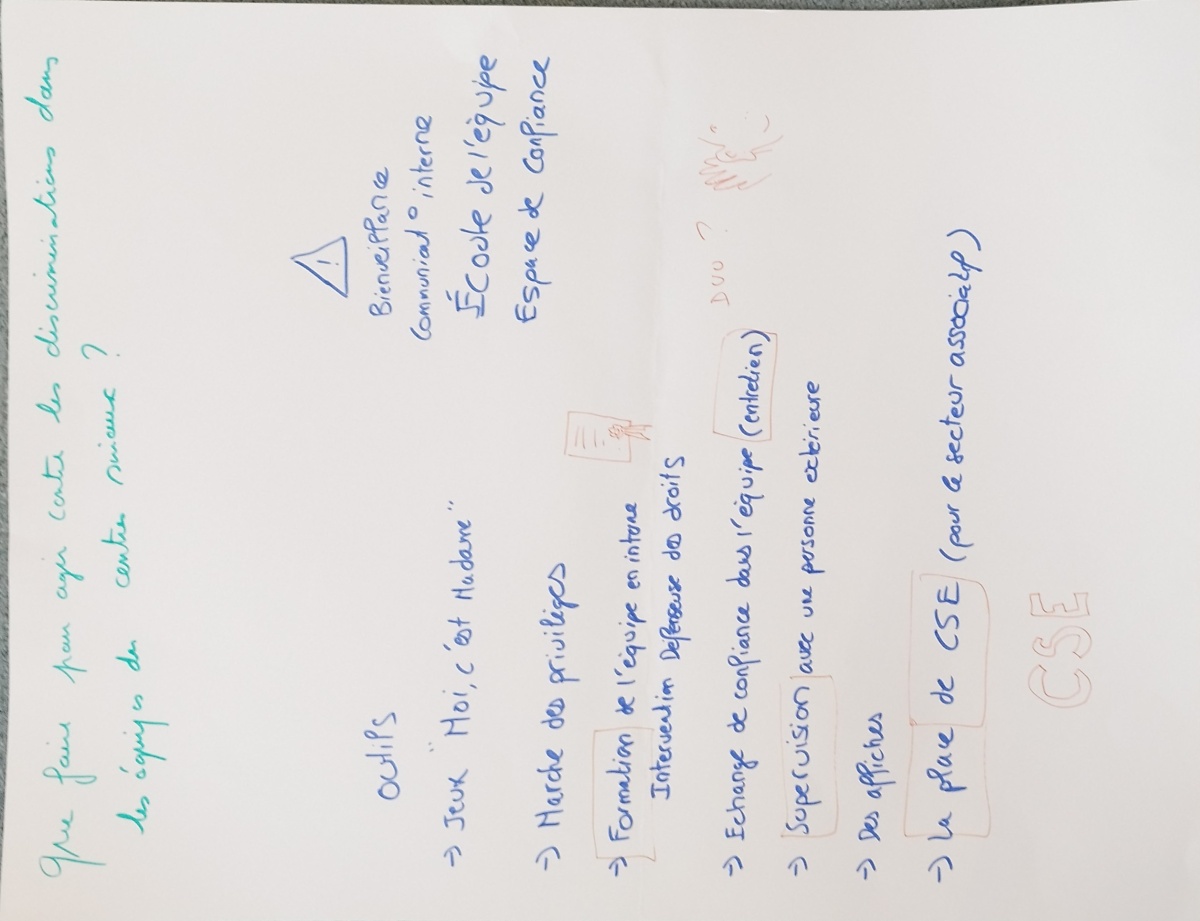 Que faire pour agir contre les discriminations dans
les équipes des centres sociaux ?
⚠
Bienveillance
Communicat° interne
Écoute de l'équipe
Espace de confiance
OUTILS
→ Jeux "Moi, c'est Madame"
→ Marche des privilèges
→ Formation de l'équipe en interne
Intervention Défenseuse des droits
→ Echange de confiance dans l'équipe (entretien)
DUO ?
→ Supervision avec une personne extérieure
→ Des affiches
→ La place de CSE (pour le secteur associatif)
CSE